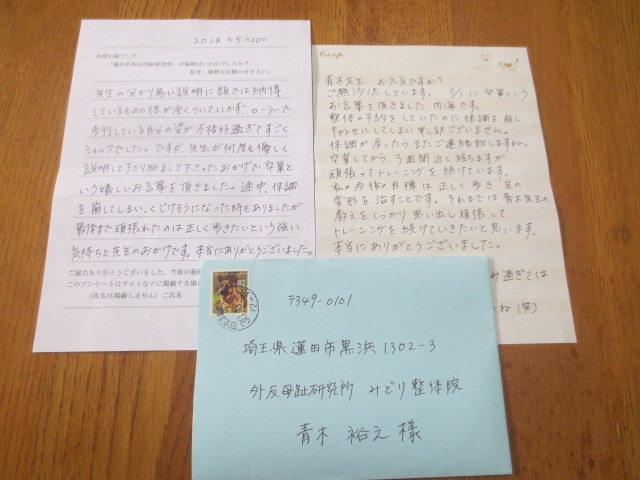 2018年5月20日
お疲れ様でした。
「蓮田市外反母趾研究所」の施術はいかがでしたか？
是非、感想をお聞かせ下さい。
先生の分かり易い説明に頭では納得
しているものの体が全くついていかず、ローラーで
歩行している自分の姿が不格好過ぎてすごく
ショックでした。ですが、先生が何度も優しく
説明して下さり励まして下さったおかげで、卒業と
いう嬉しいお言葉を頂きました。途中、体調
を崩してしまい、くじけそうになった時もありましたが
最後まで頑張れたのは正しく歩きたいという強い
気持ちと先生のおかげです。本当にありがとうございました。
ご協力ありがとうございました。今後の施術
このアンケートはサイトなどに掲載する場
（氏名は掲載しません）ご氏名
青木先生 お元気ですか？
ご無沙汰しています。 5/1に卒業という
お言葉を頂きました 内海です。
整体の予約をしていたのに体調を崩し
キャンセルしてしまい申し訳ございません。
体調が戻ったらまたご連絡致しますね。
卒業してから3週間近く経ちますが
頑張ってトレーニングを続けています。
私の今後の目標は正しく歩き、足の
変形を治すことです。それまでは青木先生の
教えをしっかり思い出し頑張って
トレーニングを続けていきたいと思います。
本当にありがとうございました。
み過ぎては
ね（笑）
〒349-0101
埼玉県蓮田市黒浜1302-3
外反母趾研究所 みどり整体院
青木 裕之様